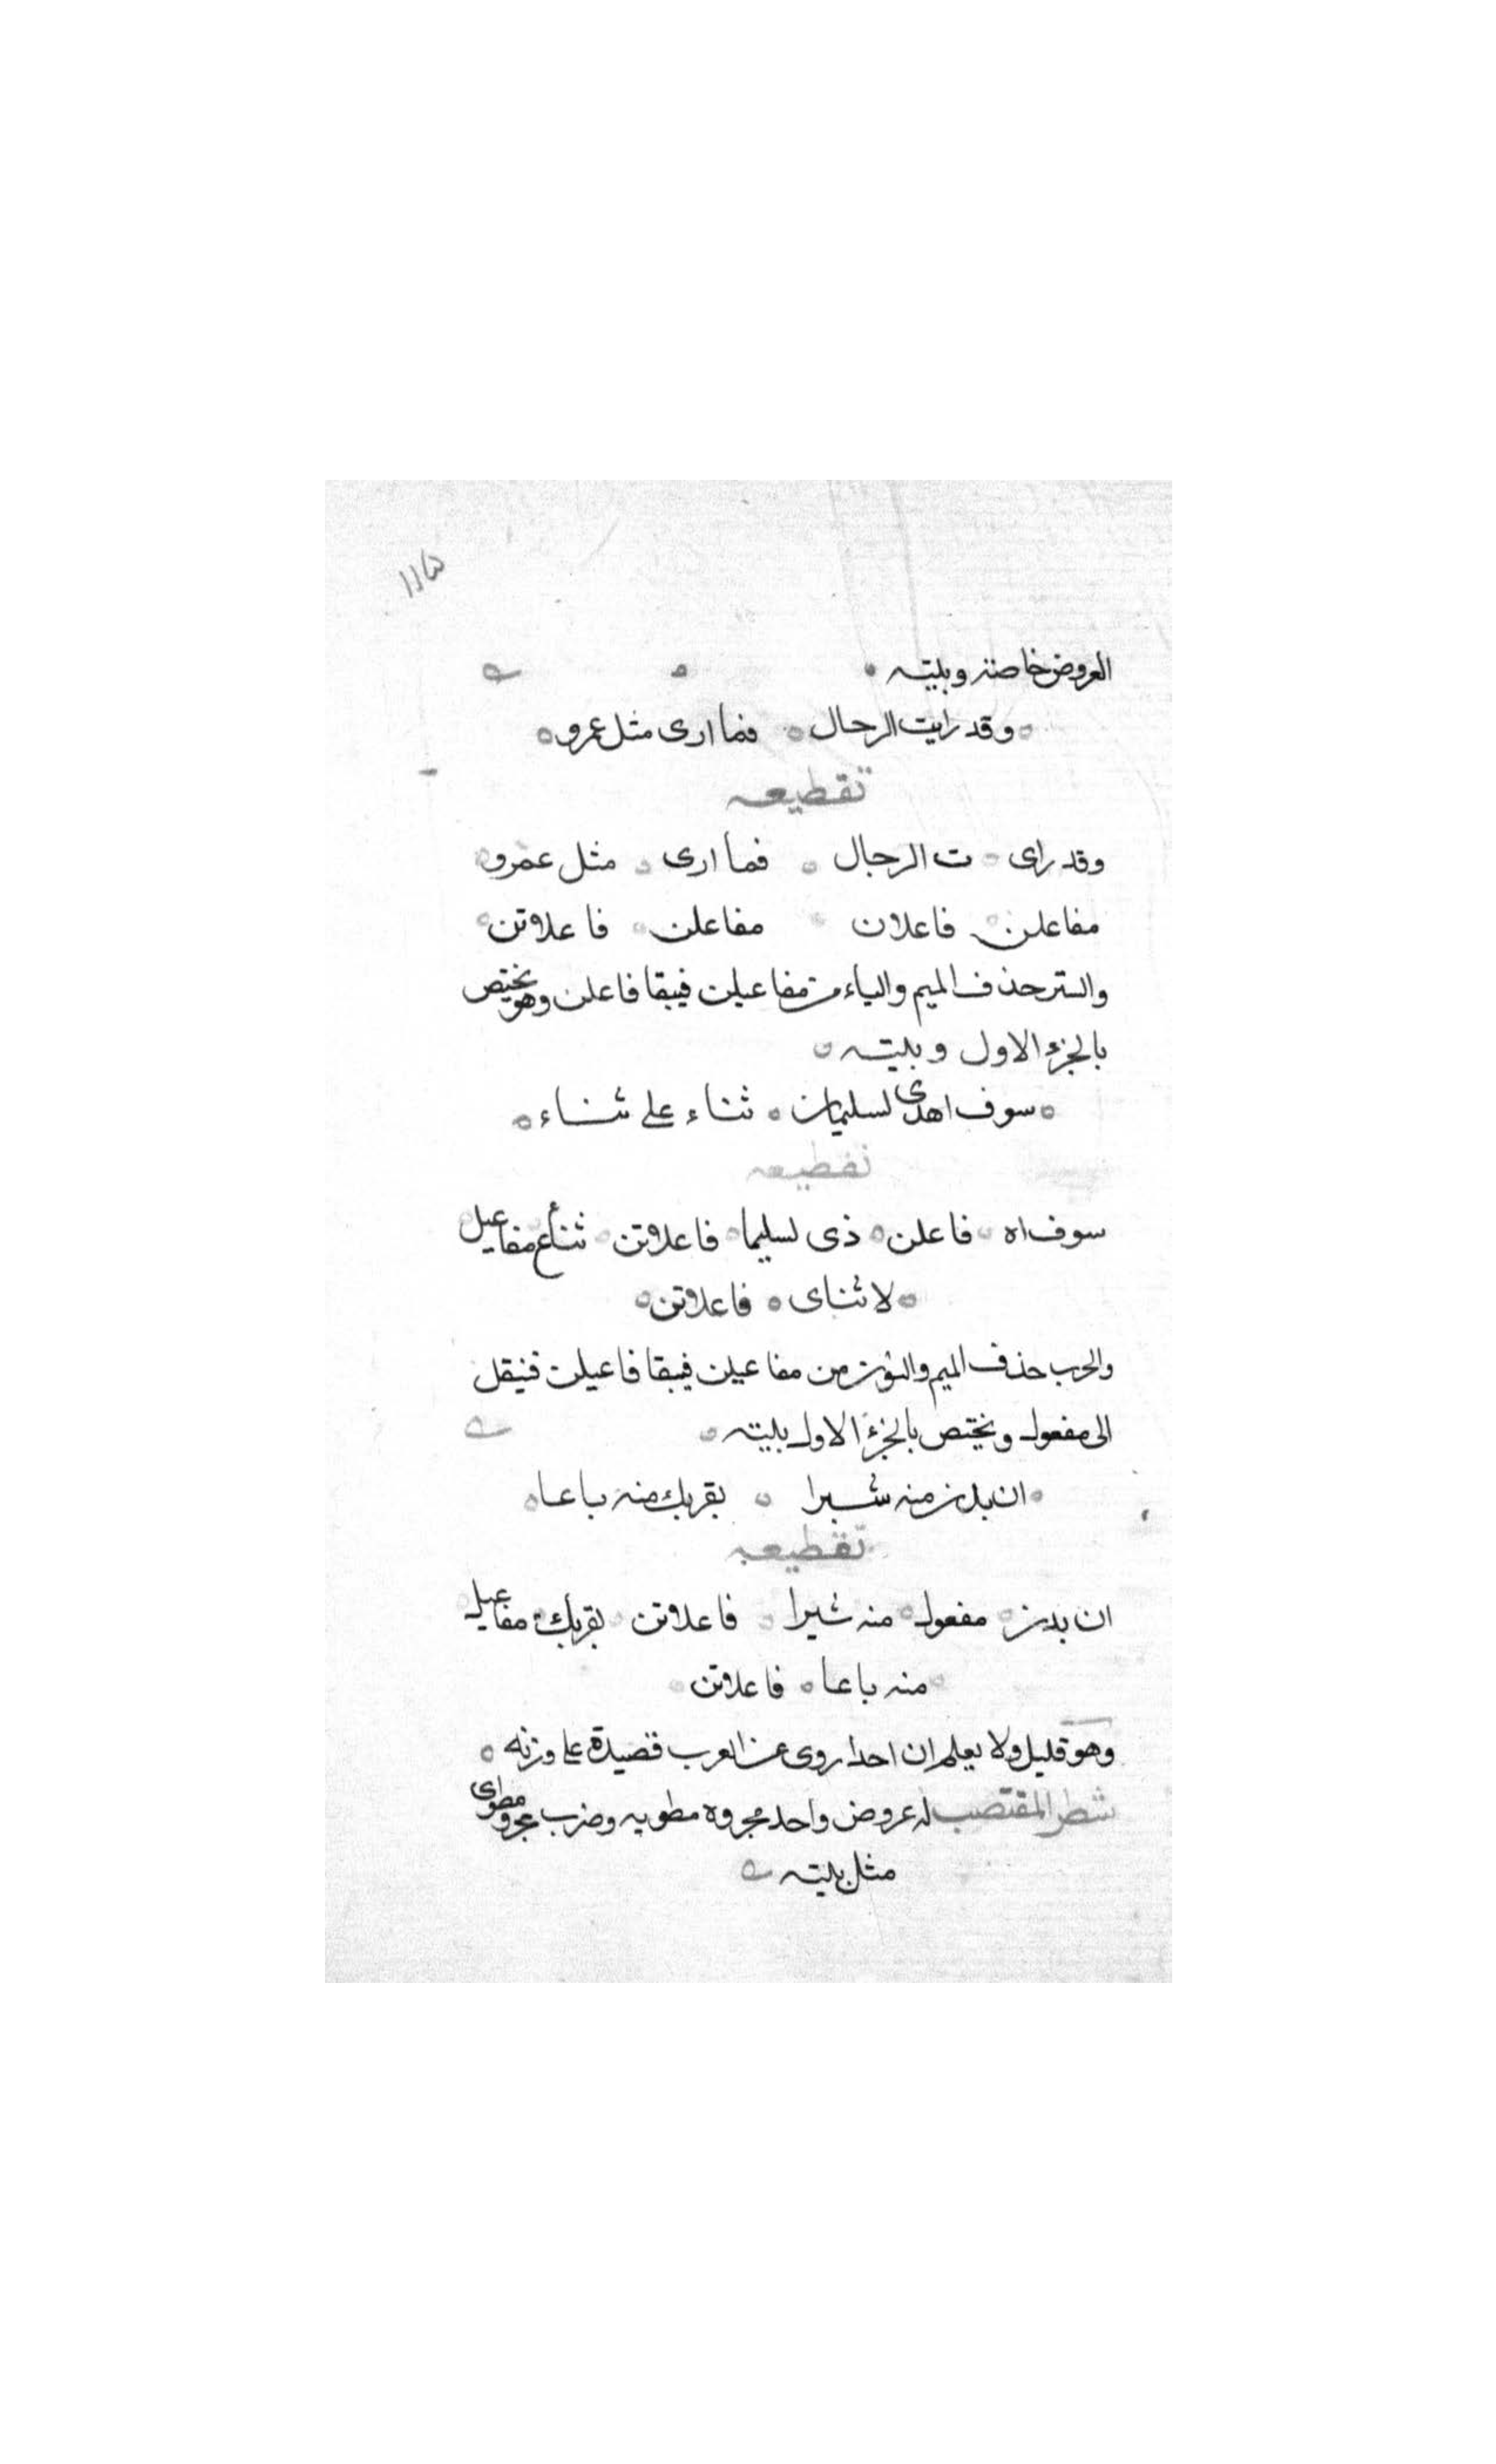 ١١٥
العروض خاصة وبيته
وقد رايت الرجال فما ارى مثل عمرو
تقطيعه
وقد راى ت الرجال فما ارى مثل عمرو
مفاعلن فاعلان مفاعلن فاعلاتن
والستر حذف الميم والياء من مفاعيلن فيبقا فاعلن وهو يختص
بالجزء الاول وبيته
سوف اهدى لسليمان ثناء على ثناء
تقطيعه
سوف اه فاعلن دى لسليما فاعلاتن ثنأع مفاعيل
لا ثناى فاعلاتن
والخرب حذف الميم والنون من مفاعيلن فيبقا فاعيلن فينقل
الى مفعول ويختص بالجزء الاول بيته
ان يدن منه شبرا يقربك منه باعا
تقطيعه
ان يدن مفعول منه شبرا فاعلاتن يقربك مفاعيل
منه باعا فاعلاتن
وهو قليل ولا يعلم ان احدا روى عن العرب قصيدة على وزنه
شطر المقتضب له عروض واحد مجزوه مطويه وضرب مجزو مطوى
مثل بيته